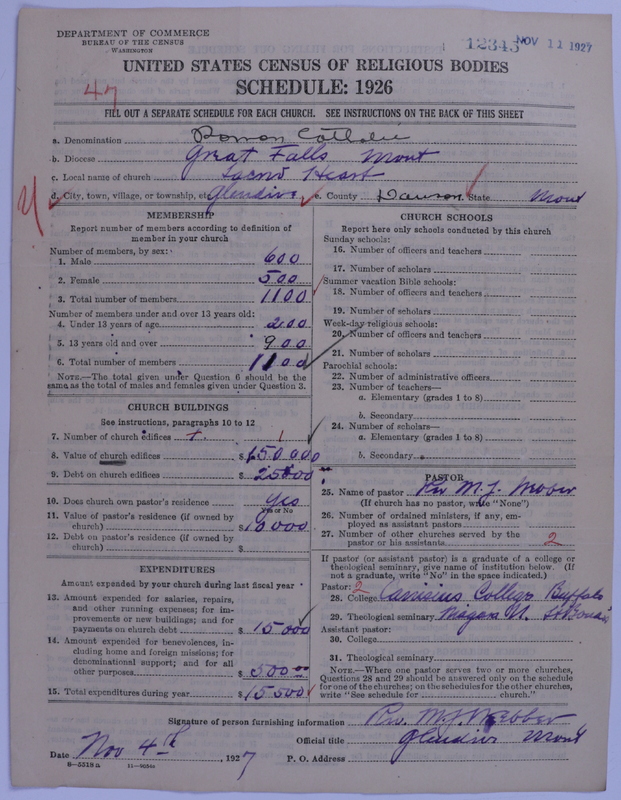 DEPARTMENT OF COMMERCE
BUREAU OF THE CENSUS
WASHINGTON
12345 NOV 11 1927
UNITED STATES CENSUS OF RELIGIOUS BODIES
SCHEDULE: 1926
47
FILL OUT A SEPARATE SCHEDULE FOR EACH CHURCH. SEE INSTRUCTIONS ON THE BACK OF THIS SHEET
a. Denomination Roman Catholic
b. Diocese Great Falls Mont
c. Local name of church Sacred Heart
d. City, town, village, or township, etc. Glendive e. County Dawson State Mont
MEMBERSHIP
Report number of members according to definition of
member in your church
Number of members, by sex:
1. Male 600
2. Female 500
3. Total number of members 1100
Number of members under and over 13 years old:
4. Under 13 years of age 200
5. 13 years old and over 900
6. Total number of members 1100
NOTE.—The total given under Question 6 should be the
same as the total of males and females given under Question 3.
CHURCH BUILDINGS
See instructions, paragraphs 10 to 12
7. Number of church edifices 1
8. Value of church edifices $150000
9. Debt on church edifices $25000
10. Does church own pastor's residence yes
Yes or No
11. Value of pastor's residence (if owned by
church) $10000
12. Debt on pastor's residence (if owned by
church) $
EXPENDITURES
Amount expended by your church during last fiscal year
13. Amount expended for salaries, repairs,
and other running expenses; for im-
provements or new buildings; and for
payments on church debt $15000
14. Amount expended for benevolences, in-
cluding home and foreign missions; for
denominational support; and for all
other purposes $500.00
15. Total expenditures during year $15500
CHURCH SCHOOLS
Report here only schools conducted by this church
Sunday schools:
16. Number of officers and teachers
17. Number of scholars
Summer vacation Bible schools:
18. Number of officers and teachers
19. Number of scholars
Week-day religious schools:
20. Number of officers and teachers
21. Number of scholars
Parochial schools:
22. Number of administrative officers
23. Number of teachers—
a. Elementary (grades 1 to 8)
b. Secondary
24. Number of scholars—
a. Elementary (grades 1 to 8)
b. Secondary
PASTOR
25. Name of pastor Rev M. J. Webber
(If church has no pastor, write "None")
26. Number of ordained ministers, if any, em-
ployed as assistant pastors
27. Number of other churches served by the
pastor or his assistants 2
If pastor (or assistant pastor) is a graduate of a college or
theological seminary, give name of institution below. (If
not a graduate, write "No" in the space indicated.)
Pastor: 2
28. College Canisius College Buffalo
29. Theological seminary Niagara U. St Bonav
Assistant pastor:
30. College
31. Theological seminary
NOTE.—Where one pastor serves two or more churches,
Questions 28 and 29 should be answered only on the schedule
for one of the churches; on the schedules for the other churches,
write "See schedule for church."
Signature of person furnishing information Rev. M. J. Webber
Official title Glendive Mont
Date Nov 4th, 1927 P. O. Address
8—5518a 11—9086a